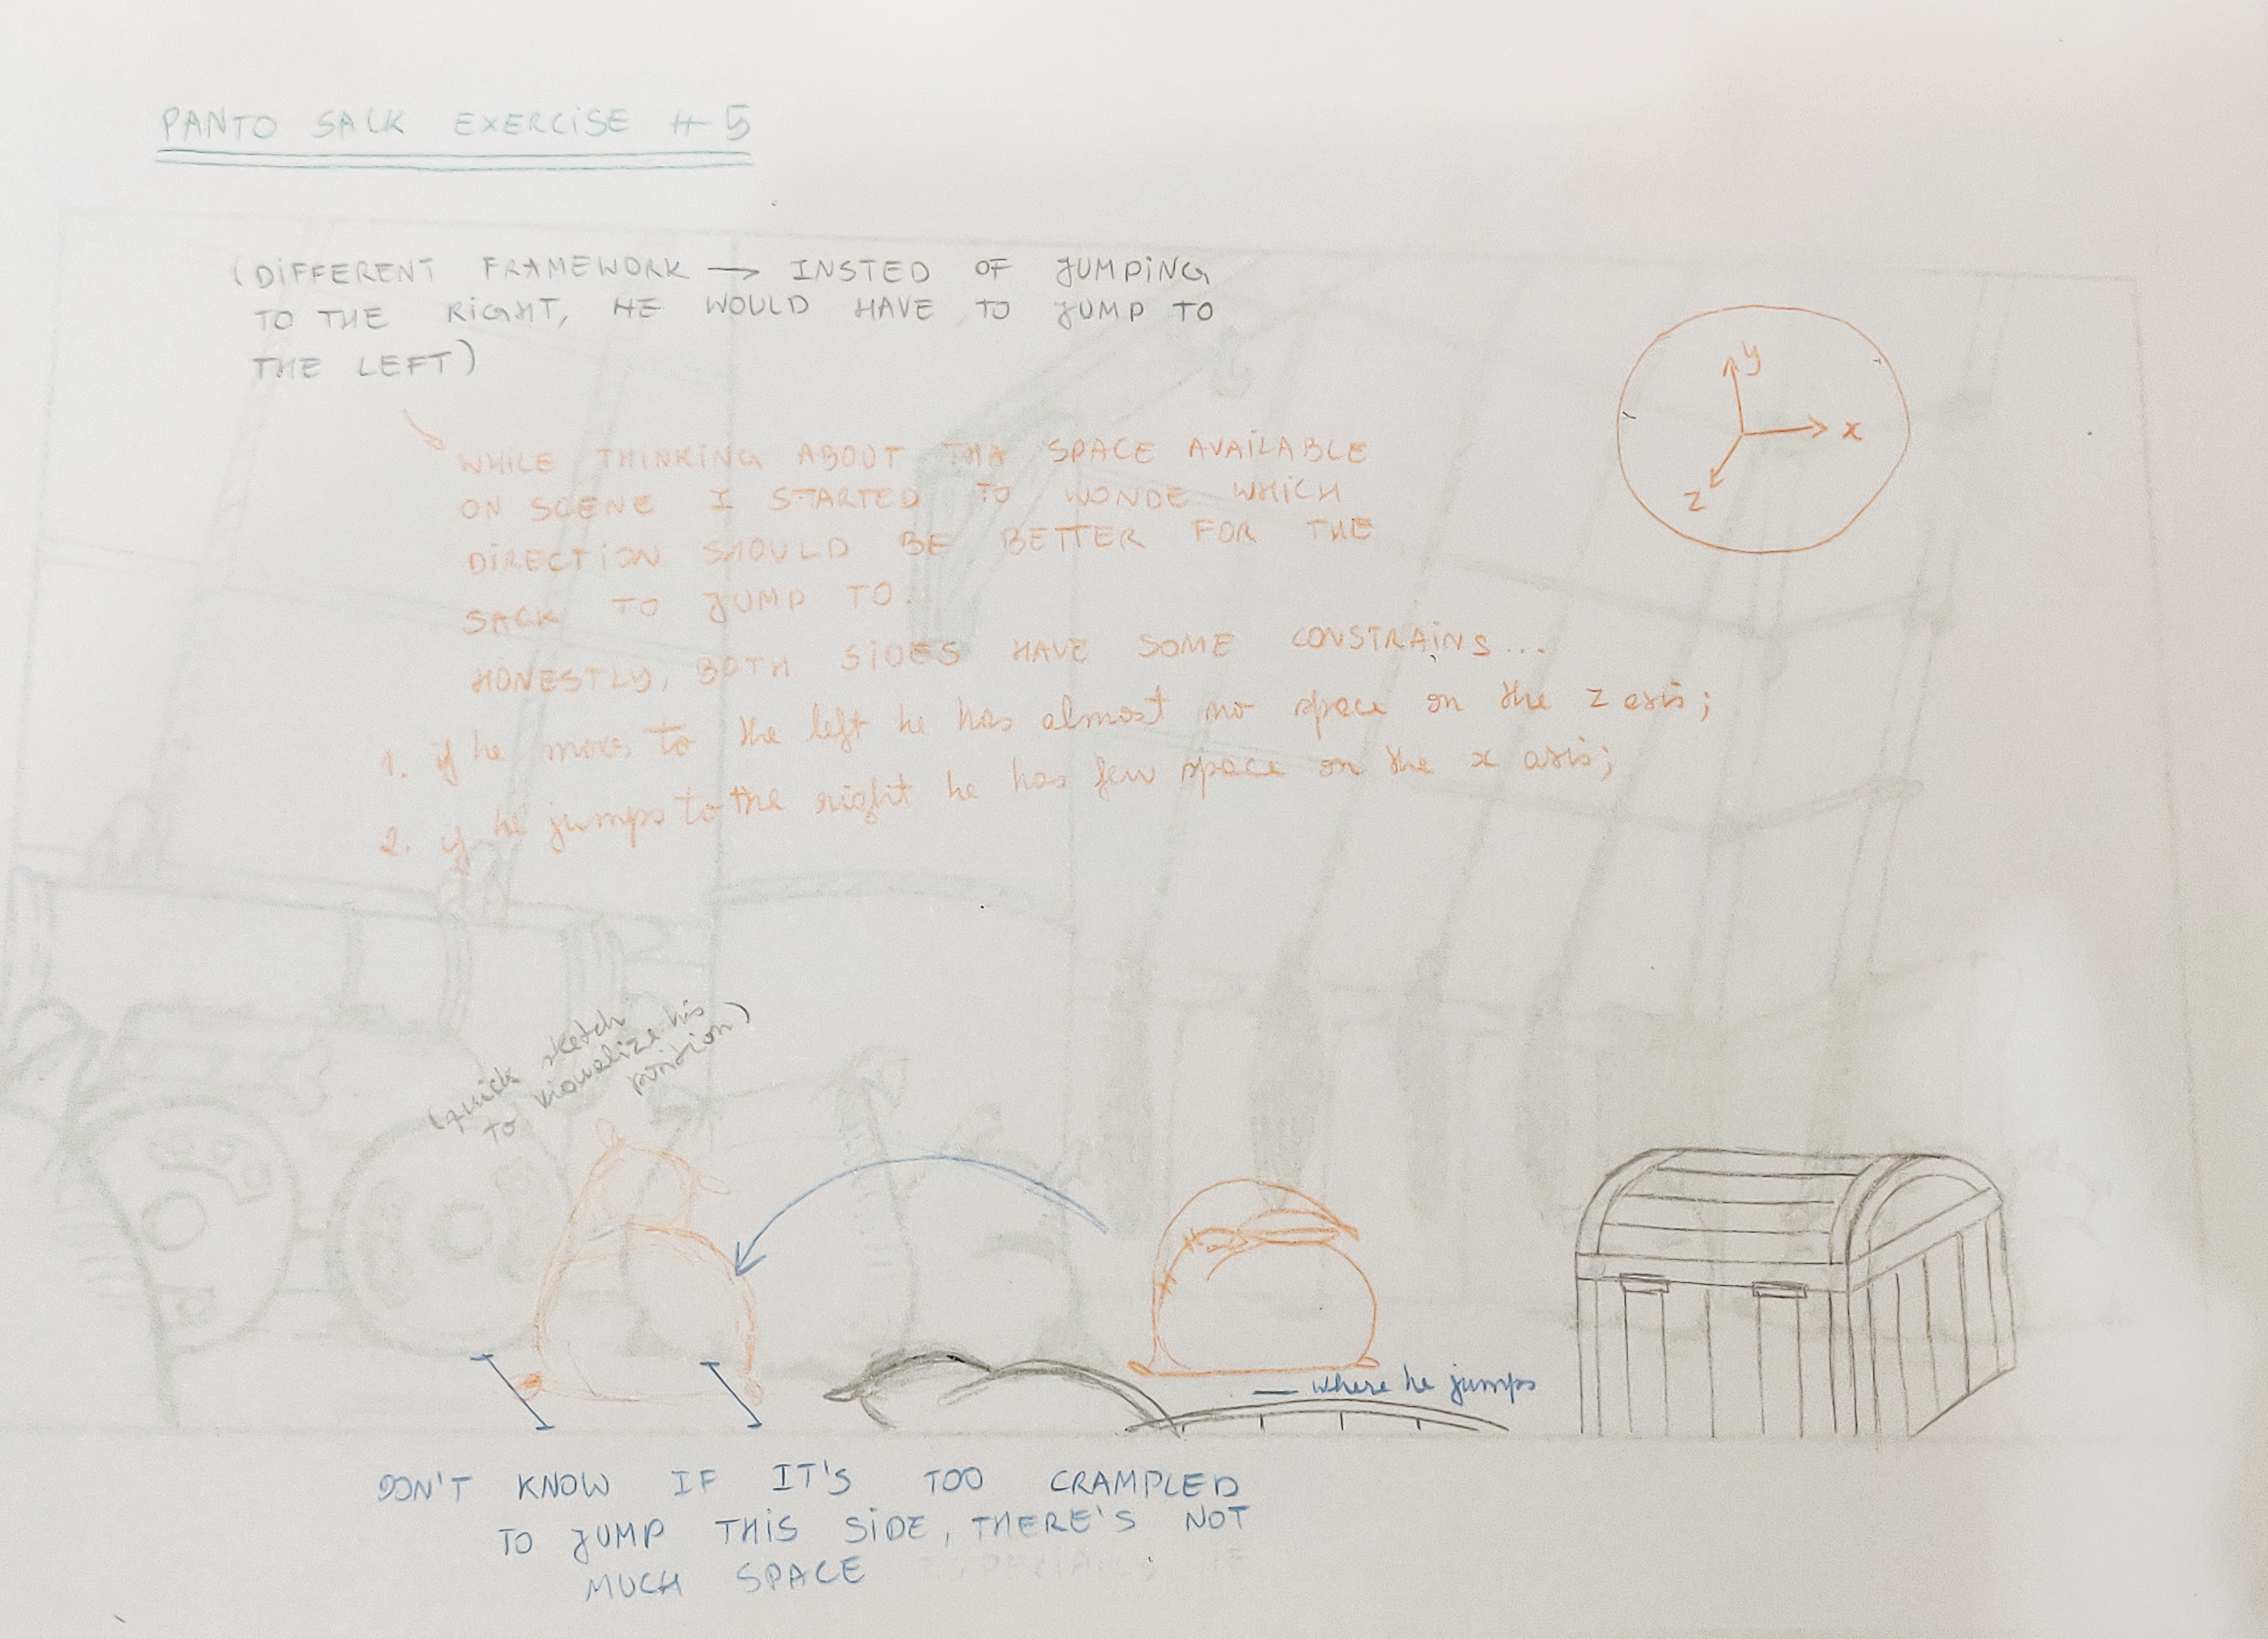 PANTO SACK EXERCISE #5
(DIFFERENT FRAMEWORK → INSTED OF JUMPING
TO THE RIGHT, HE WOULD HAVE TO JUMP TO
THE LEFT)
WHILE THINKING ABOUT THA SPACE AVAILABLE
ON SCENE I STARTED TO WONDE WHICH
DIRECTION SHOULD BE BETTER FOR THE
SACK TO JUMP TO.
HONESTLY, BOTH SIDES HAVE SOME CONSTRAINS...
1. if he moves to the left he has almost no space on the z axis;
2. if he jumps to the right he has few space on the x axis;
y
x
z
(quick sketch
to visualize his
position)
— where he jumps
DON'T KNOW IF IT'S TOO CRAMPLED
TO JUMP THIS SIDE, THERE'S NOT
MUCH SPACE